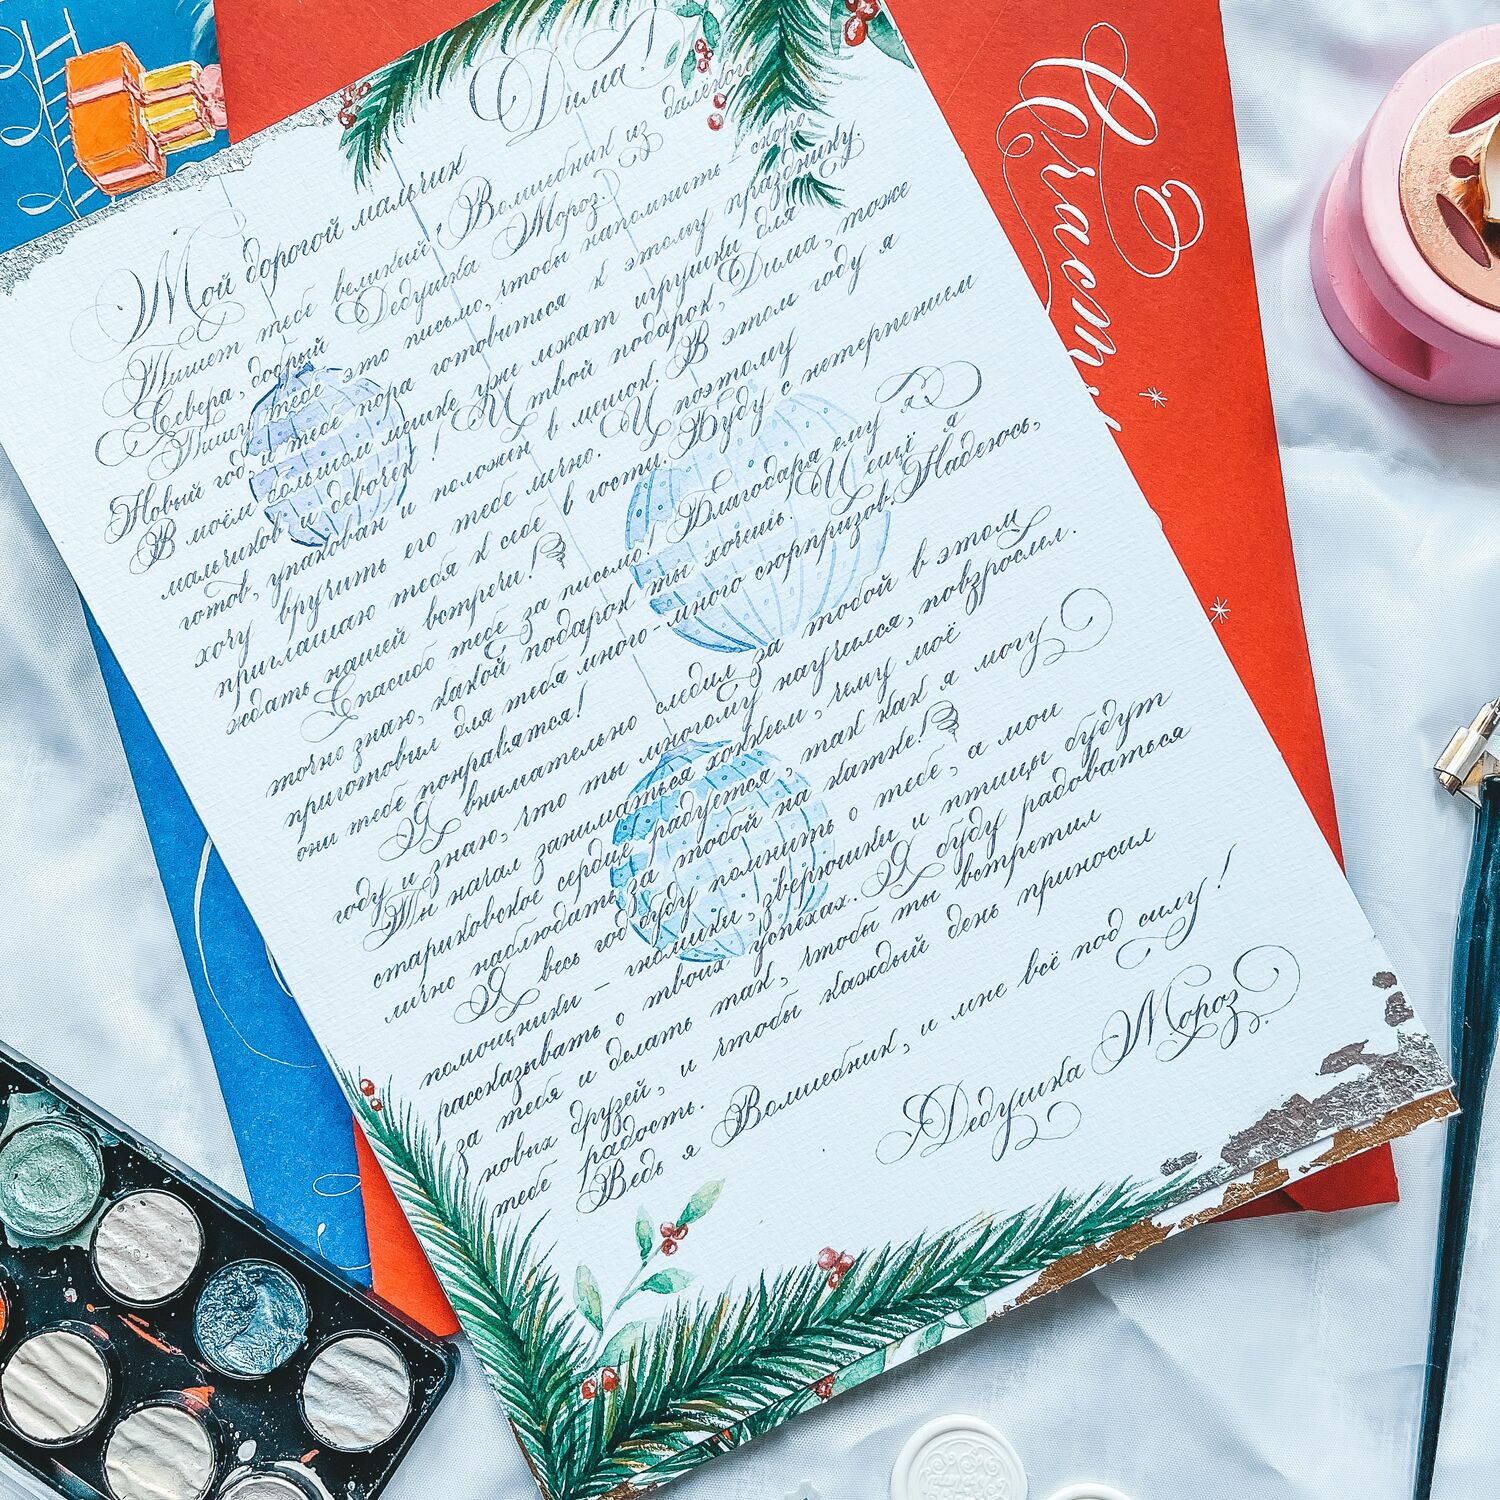 Мой дорогой мальчик Дима!
Пишет тебе великий Волшебник из далёкого
Севера, добрый Дедушка Мороз.
Пишу тебе это письмо, чтобы напомнить – скоро
Новый год, и тебе пора готовиться к этому празднику.
В моём большом мешке уже лежат игрушки для
мальчиков и девочек! И твой подарок, Дима, тоже
готов, упакован и положен в мешок. В этом году я
хочу вручить его тебе лично. И поэтому
приглашаю тебя к себе в гости. Буду с нетерпением
ждать нашей встречи!
Спасибо тебе за письмо! Благодаря ему я
точно знаю, какой подарок ты хочешь. И ещё я
приготовил для тебя много-много сюрпризов. Надеюсь,
они тебе понравятся!
Я внимательно следил за тобой в этом
году и знаю, что ты многому научился, повзрослел.
Ты начал заниматься хоккеем, чему моё
стариковское сердце радуется, так как я могу
лично наблюдать за тобой на катке!
Я весь год буду помнить о тебе, а мои
помощники – гномики, зверюшки и птицы будут
рассказывать о твоих успехах. Я буду радоваться
за тебя и делать так, чтобы ты встретил
новых друзей, и чтобы каждый день приносил
тебе радость.
Ведь я Волшебник, и мне всё под силу!
Дедушка Мороз.